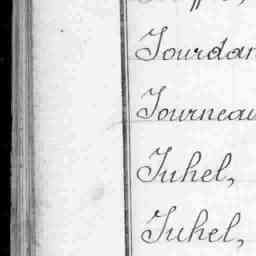 Jourdan
Journeau
Juhel,
Juhel,